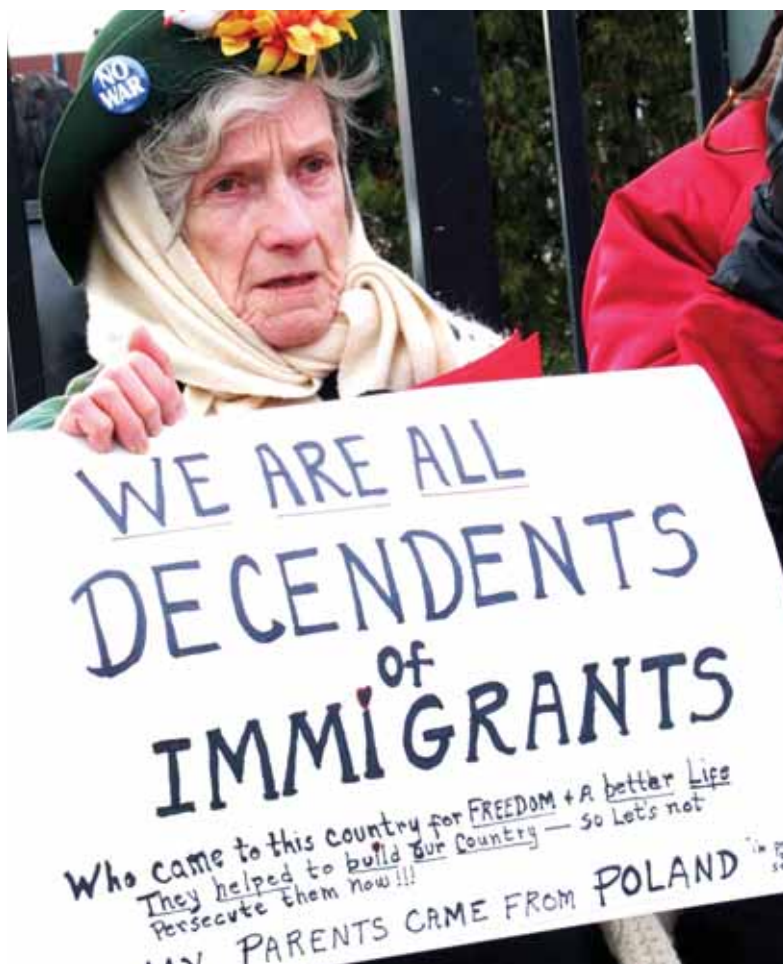 NO
WAR
WE ARE ALL
DECENDENTS
of
IMMiGRANTS
Who came to this country for FREEDOM + A better Life
They helped to build our Country — so Let's not
Persecute them now!!!
PARENTS CAME FROM POLAND